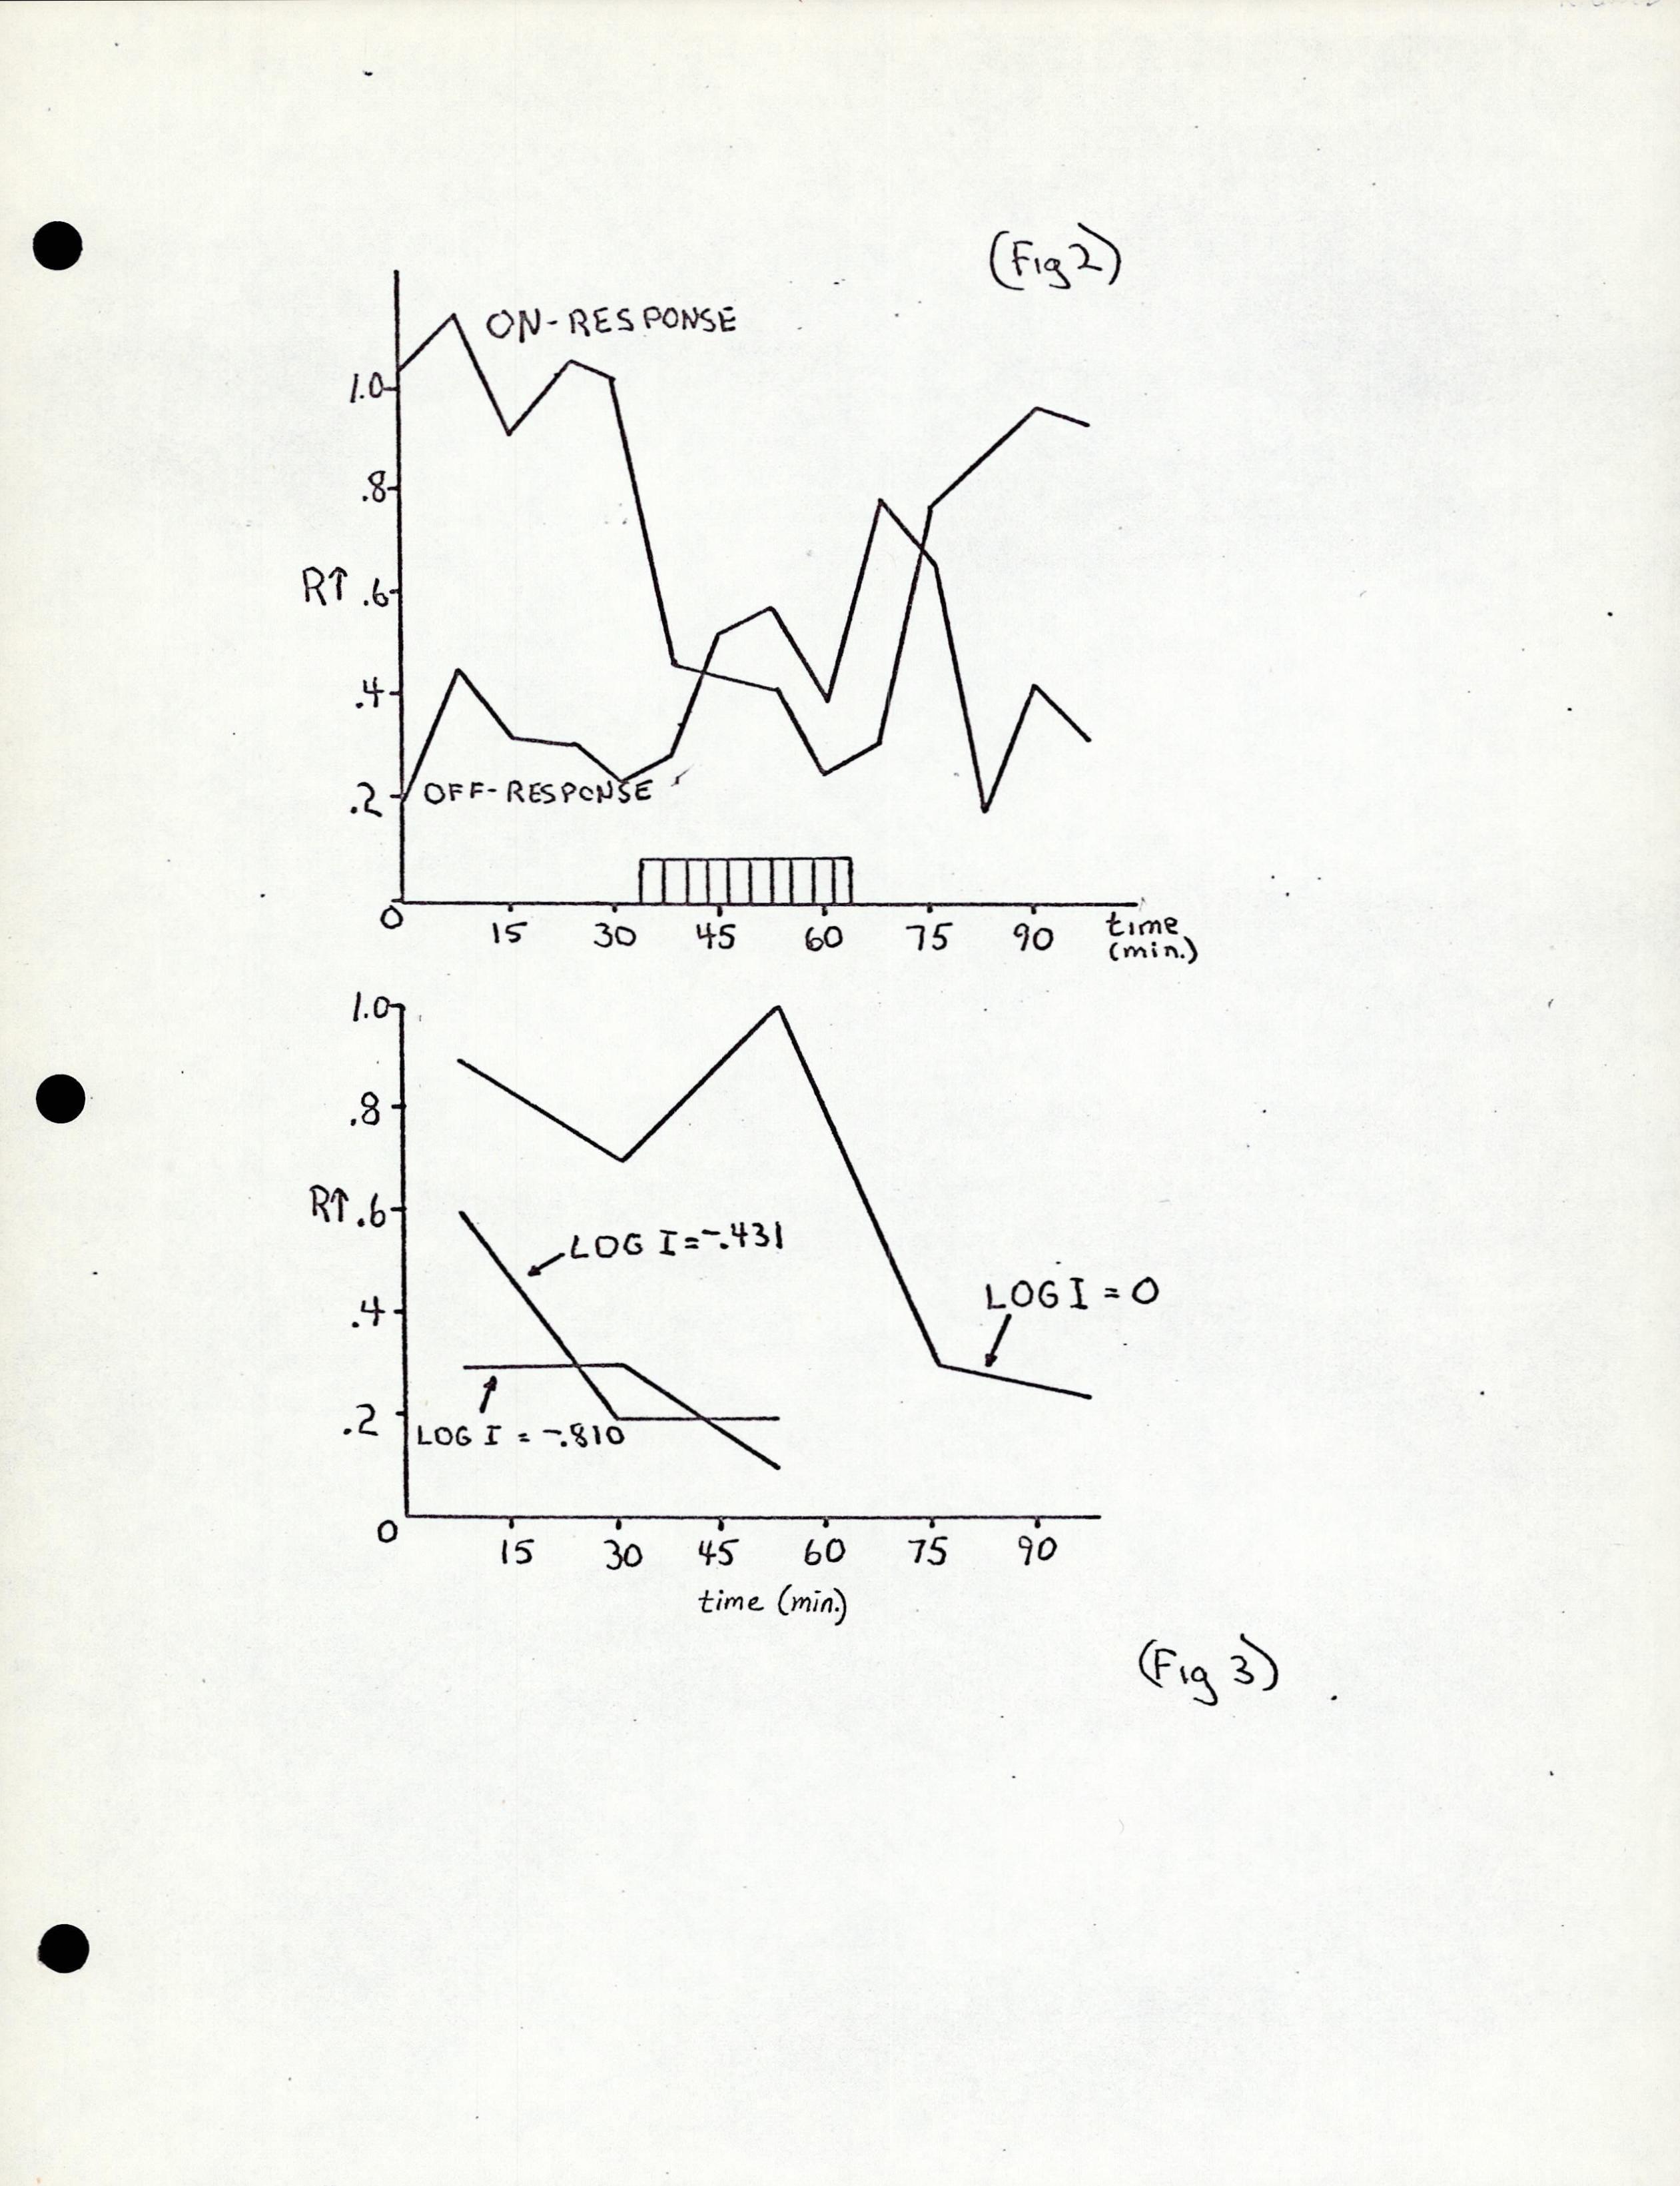 (Fig 2)
ON-RESPONSE
1.0
.8
R↑ .6
.4
.2
OFF-RESPONSE
0
15 30 45 60 75 90 time
(min.)
1.0
.8
R↑ .6
LOG I = -.431
LOG I = 0
.4
.2
LOG I = -.810
0
15 30 45 60 75 90
time (min.)
(Fig 3)